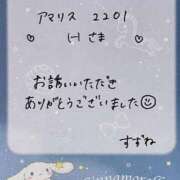 アマリス 2201
♡ Hさま ♡
お誘いいただき
ありがとうございました☺
すずね